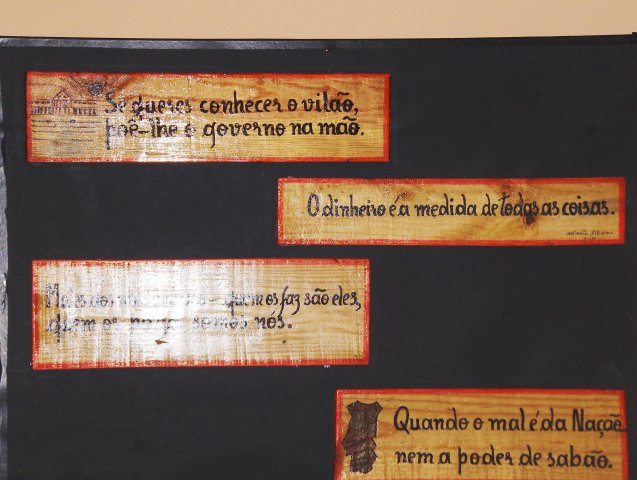 Se queres conhecer o vilão,
põe-lhe o governo na mão.
O dinheiro é a medida de todas as coisas.
Males dos - quem os faz são eles,
quem os paga somos nós.
Quando o mal é da Nação
nem a poder de sabão.